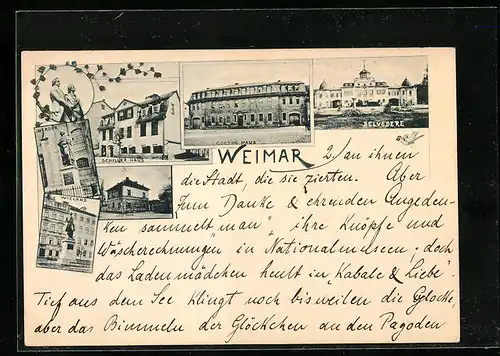 HERDER
SCHILLER-HAUS
GOETHE-HAUS
BELVEDERE
WIELAND
WEIMAR
2/ an ihnen
die Stadt, die sie zierten. Aber
Zum Danke & ehrenden Angeden-
ken sammelt "man", ihre Knöpfe und
Wäscherechnungen in Nationalmuseen; doch
das Ladenmädchen heult in "Kabale & Liebe".
Tief aus dem See klingt noch bisweilen die Glocke,
aber das Bimmeln der Glöckchen an den Pagoden